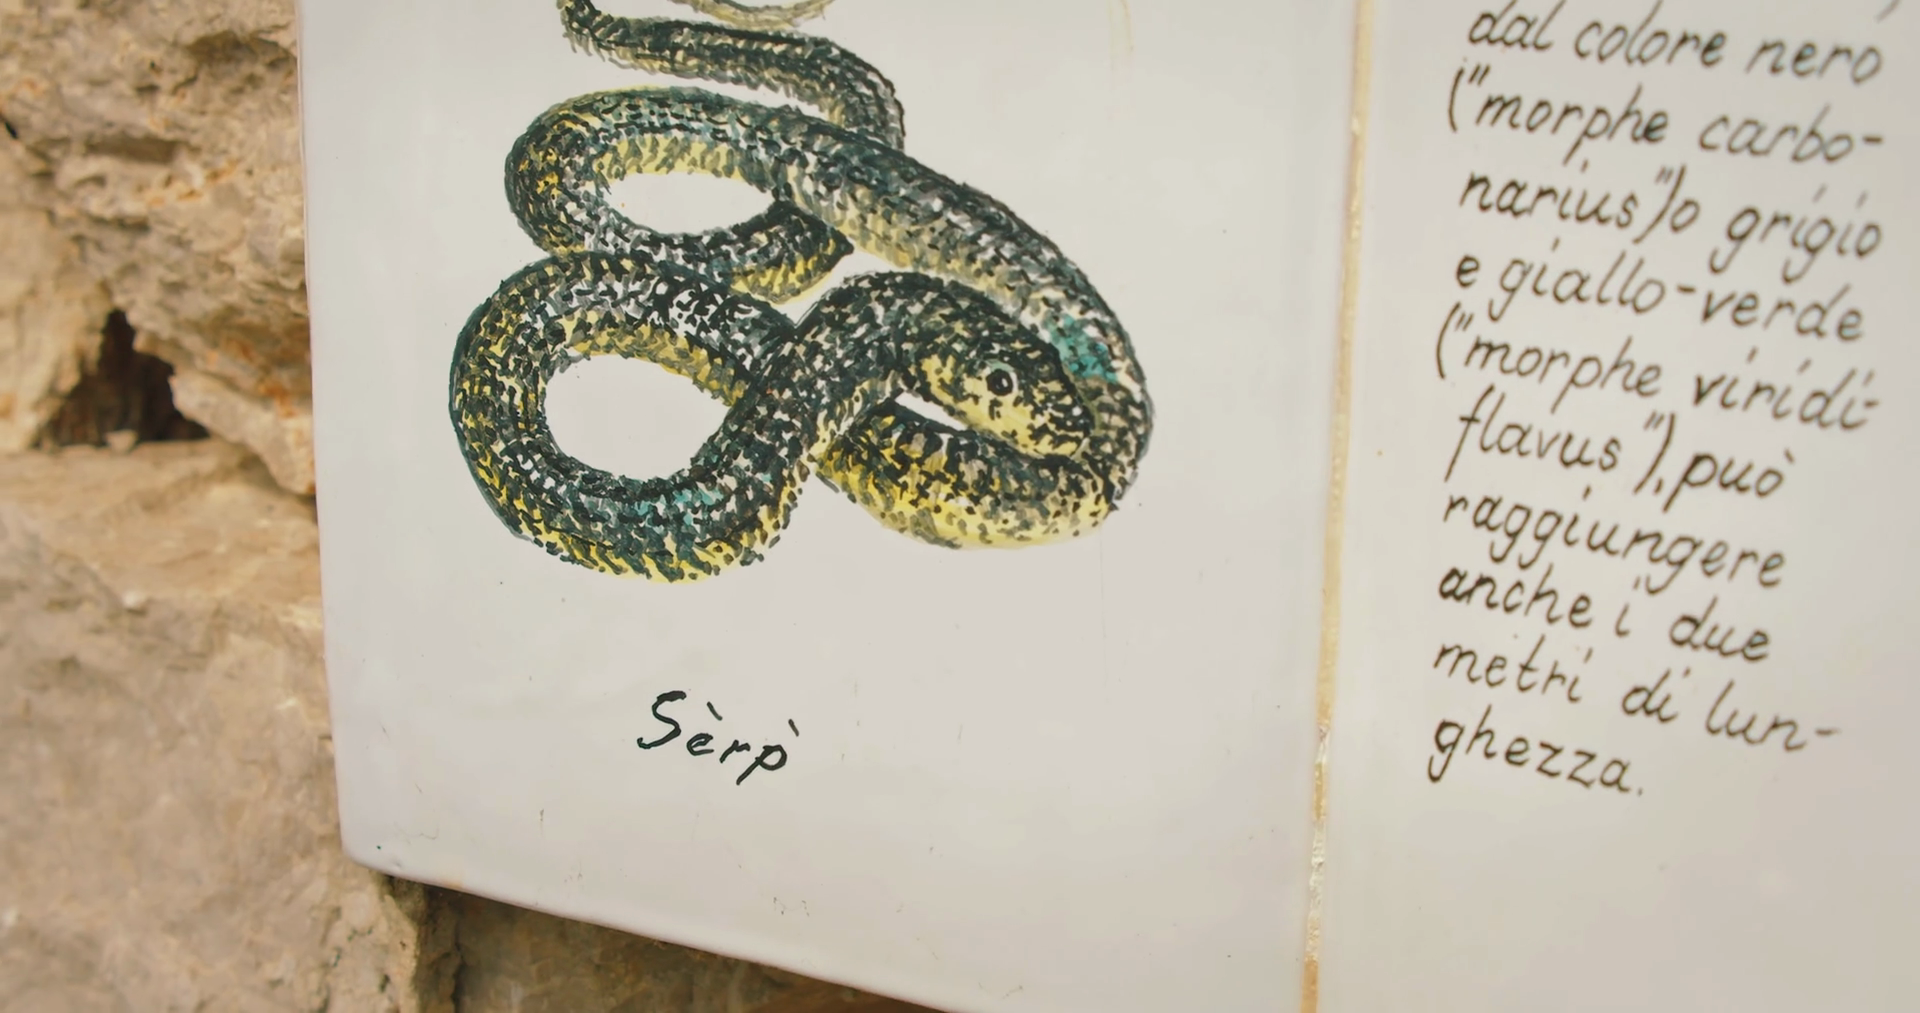 dal colore nero
("morphe carbo-
narius") o grigio
e giallo-verde
("morphe viridi-
flavus"), può
raggiungere
anche i due
metri di lun-
ghezza.
Sèrp